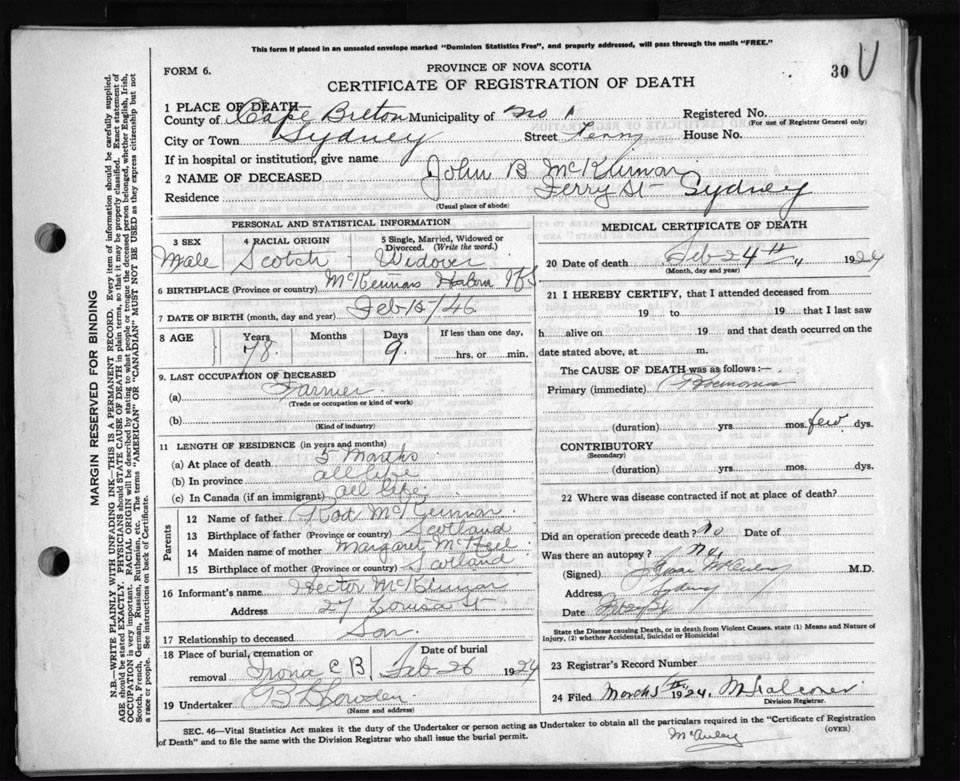 This form if placed in an unsealed envelope marked "Dominion Statistics Free", and properly addressed, will pass through the mails "FREE."
FORM 6.
PROVINCE OF NOVA SCOTIA
30
CERTIFICATE OF REGISTRATION OF DEATH
1 PLACE OF DEATH
County of Cape Breton Municipality of No 1 Registered No.
(For use of Registrar General only)
City or Town Sydney Street Ferry House No.
If in hospital or institution, give name
2 NAME OF DECEASED John B McKinnon
Residence Ferry St Sydney
(Usual place of abode)
PERSONAL AND STATISTICAL INFORMATION
3 SEX 4 RACIAL ORIGIN 5 Single, Married, Widowed or Divorced. (Write the word.)
Male Scotch Widover
6 BIRTHPLACE (Province or country) McKennas
7 DATE OF BIRTH (month, day and year) Feb 15/46
8 AGE Years Months Days If less than one day,
78 9 hrs. or min.
9. LAST OCCUPATION OF DECEASED
(a) Farmer
(Trade or occupation or kind of work)
(b)
(Kind of industry)
11 LENGTH OF RESIDENCE (in years and months)
(a) At place of death 5 Months
(b) In province all life
(c) In Canada (if an immigrant) all life
Parents
12 Name of father Rod McKinnon
13 Birthplace of father (Province or country) Scotland
14 Maiden name of mother Margaret McNeil
15 Birthplace of mother (Province or country) Scotland
16 Informant's name Hector McKinnon
Address 27 Louisa St
17 Relationship to deceased Son
18 Place of burial, cremation or removal Date of burial
Iona C B Feb 26 1924
19 Undertaker
(Name and address)
MEDICAL CERTIFICATE OF DEATH
20 Date of death Feb 24th 1924
(Month, day and year)
21 I HEREBY CERTIFY, that I attended deceased from
19 to 19 that I last saw
h alive on 19 and that death occurred on the
date stated above, at m.
The CAUSE OF DEATH was as follows:—
Primary (immediate) Pneumonia
(duration) yrs. mos. few dys.
CONTRIBUTORY
(Secondary)
(duration) yrs. mos. dys.
22 Where was disease contracted if not at place of death?
Did an operation precede death? No Date of
Was there an autopsy? No
(Signed) M.D.
Address Sydney
Date
State the Disease causing Death, or in death from Violent Causes, state (1) Means and Nature of Injury, (2) whether Accidental, Suicidal or Homicidal
23 Registrar's Record Number
24 Filed March 5th 1924, M Falconer
Division Registrar.
McAuley
(OVER)
SEC. 46—Vital Statistics Act makes it the duty of the Undertaker or person acting as Undertaker to obtain all the particulars required in the "Certificate of Registration
of Death" and to file the same with the Division Registrar who shall issue the burial permit.
MARGIN RESERVED FOR BINDING
N.B.—WRITE PLAINLY WITH UNFADING INK—THIS IS A PERMANENT RECORD. Every item of information should be carefully supplied.
AGE should be stated EXACTLY. PHYSICIANS should STATE CAUSE OF DEATH in plain terms, so that it may be properly classified. Exact statement of
OCCUPATION is very important. RACIAL ORIGIN will be described by stating to what people or tongue the deceased person belonged, whether English, Irish,
Scotch, French, German, Russian, Ruthenian, etc. The terms "AMERICAN" OR "CANADIAN" MUST NOT BE USED as they express citizenship but not
a race or people. See instructions on back of Certificate.